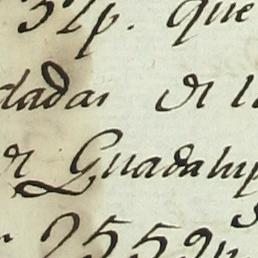 32p. que
dadas de l
de Guadalup
2552p